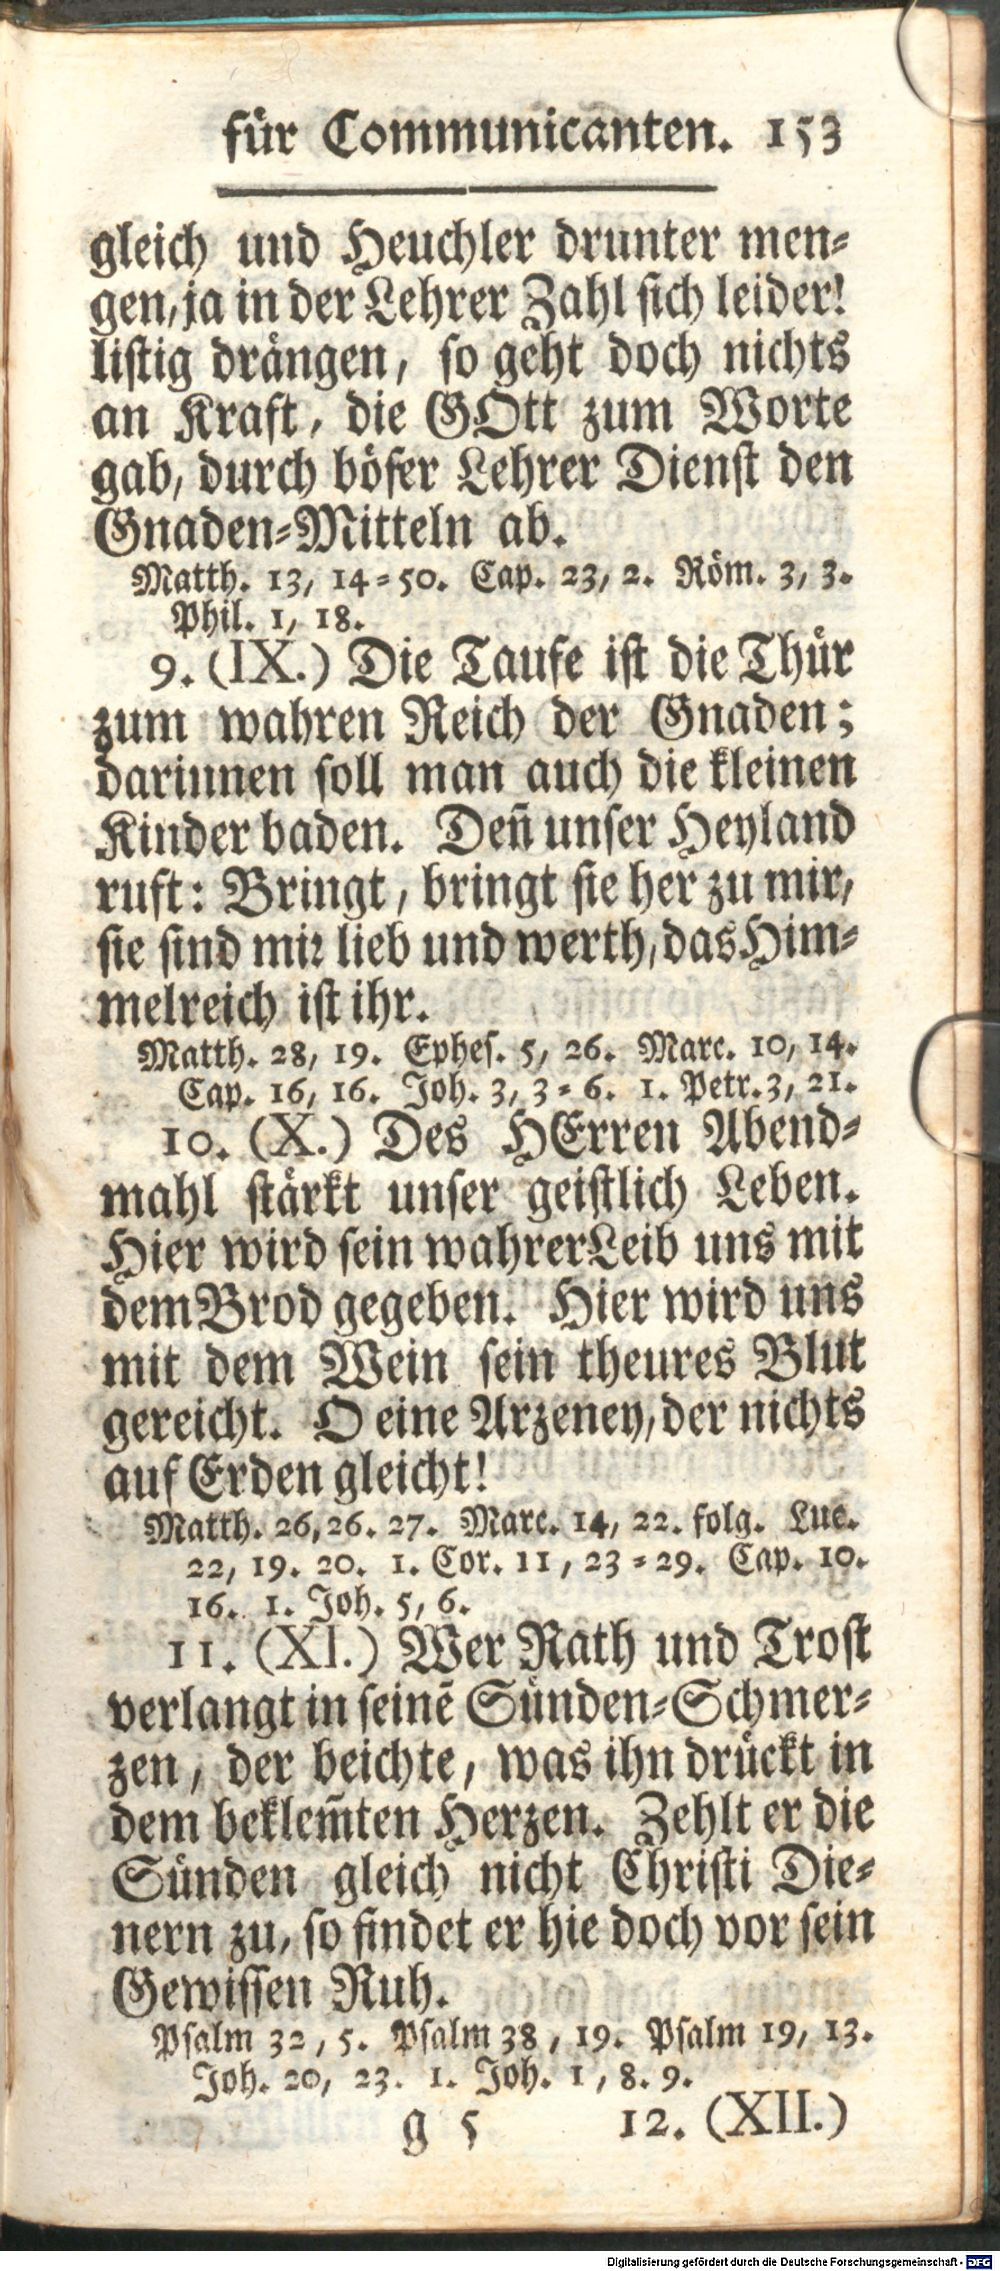 für Communicanten. 153
gleich und Heuchler drunter men-
gen, ja in der Lehrer Zahl sich leider!
listig drängen, so geht doch nichts
an Kraft, die GOtt zum Worte
gab, durch böser Lehrer Dienst den
Gnaden-Mitteln ab.
Matth. 13, 14-50. Cap. 23, 2. Röm. 3, 3.
Phil. 1, 18.
9. (IX.) Die Taufe ist die Thür
zum wahren Reich der Gnaden;
dariunen soll man auch die kleinen
Kinder baden. Deñ unser Heyland
ruft: Bringt, bringt sie her zu mir,
sie sind mir lieb und werth, das Him-
melreich ist ihr.
Matth. 28, 19. Ephes. 5, 26. Marc. 10, 14.
Cap. 16, 16. Joh. 3, 3-6. 1. Petr. 3, 21.
10. (X.) Des HErren Abend-
mahl stärkt unser geistlich Leben.
Hier wird sein wahrer Leib uns mit
dem Brod gegeben. Hier wird uns
mit dem Wein sein theures Blut
gereicht. O eine Arzeney, der nichts
auf Erden gleicht!
Matth. 26, 26. 27. Marc. 14, 22. folg. Luc.
22, 19. 20. 1. Cor. 11, 23-29. Cap. 10.
16. 1. Joh. 5, 6.
11. (XI.) Wer Rath und Trost
verlangt in seinē Sünden-Schmer-
zen, der beichte, was ihn drückt in
dem beklem̃ten Herzen. Zehlt er die
Sünden gleich nicht Christi Die-
nern zu, so findet er hie doch vor sein
Gewissen Ruh.
Psalm 32, 5. Psalm 38, 19. Psalm 19, 13.
Joh. 20, 23. 1. Joh. 1, 8. 9.
g 5 12. (XII.)
Digitalisierung gefördert durch die Deutsche Forschungsgemeinschaft - DFG